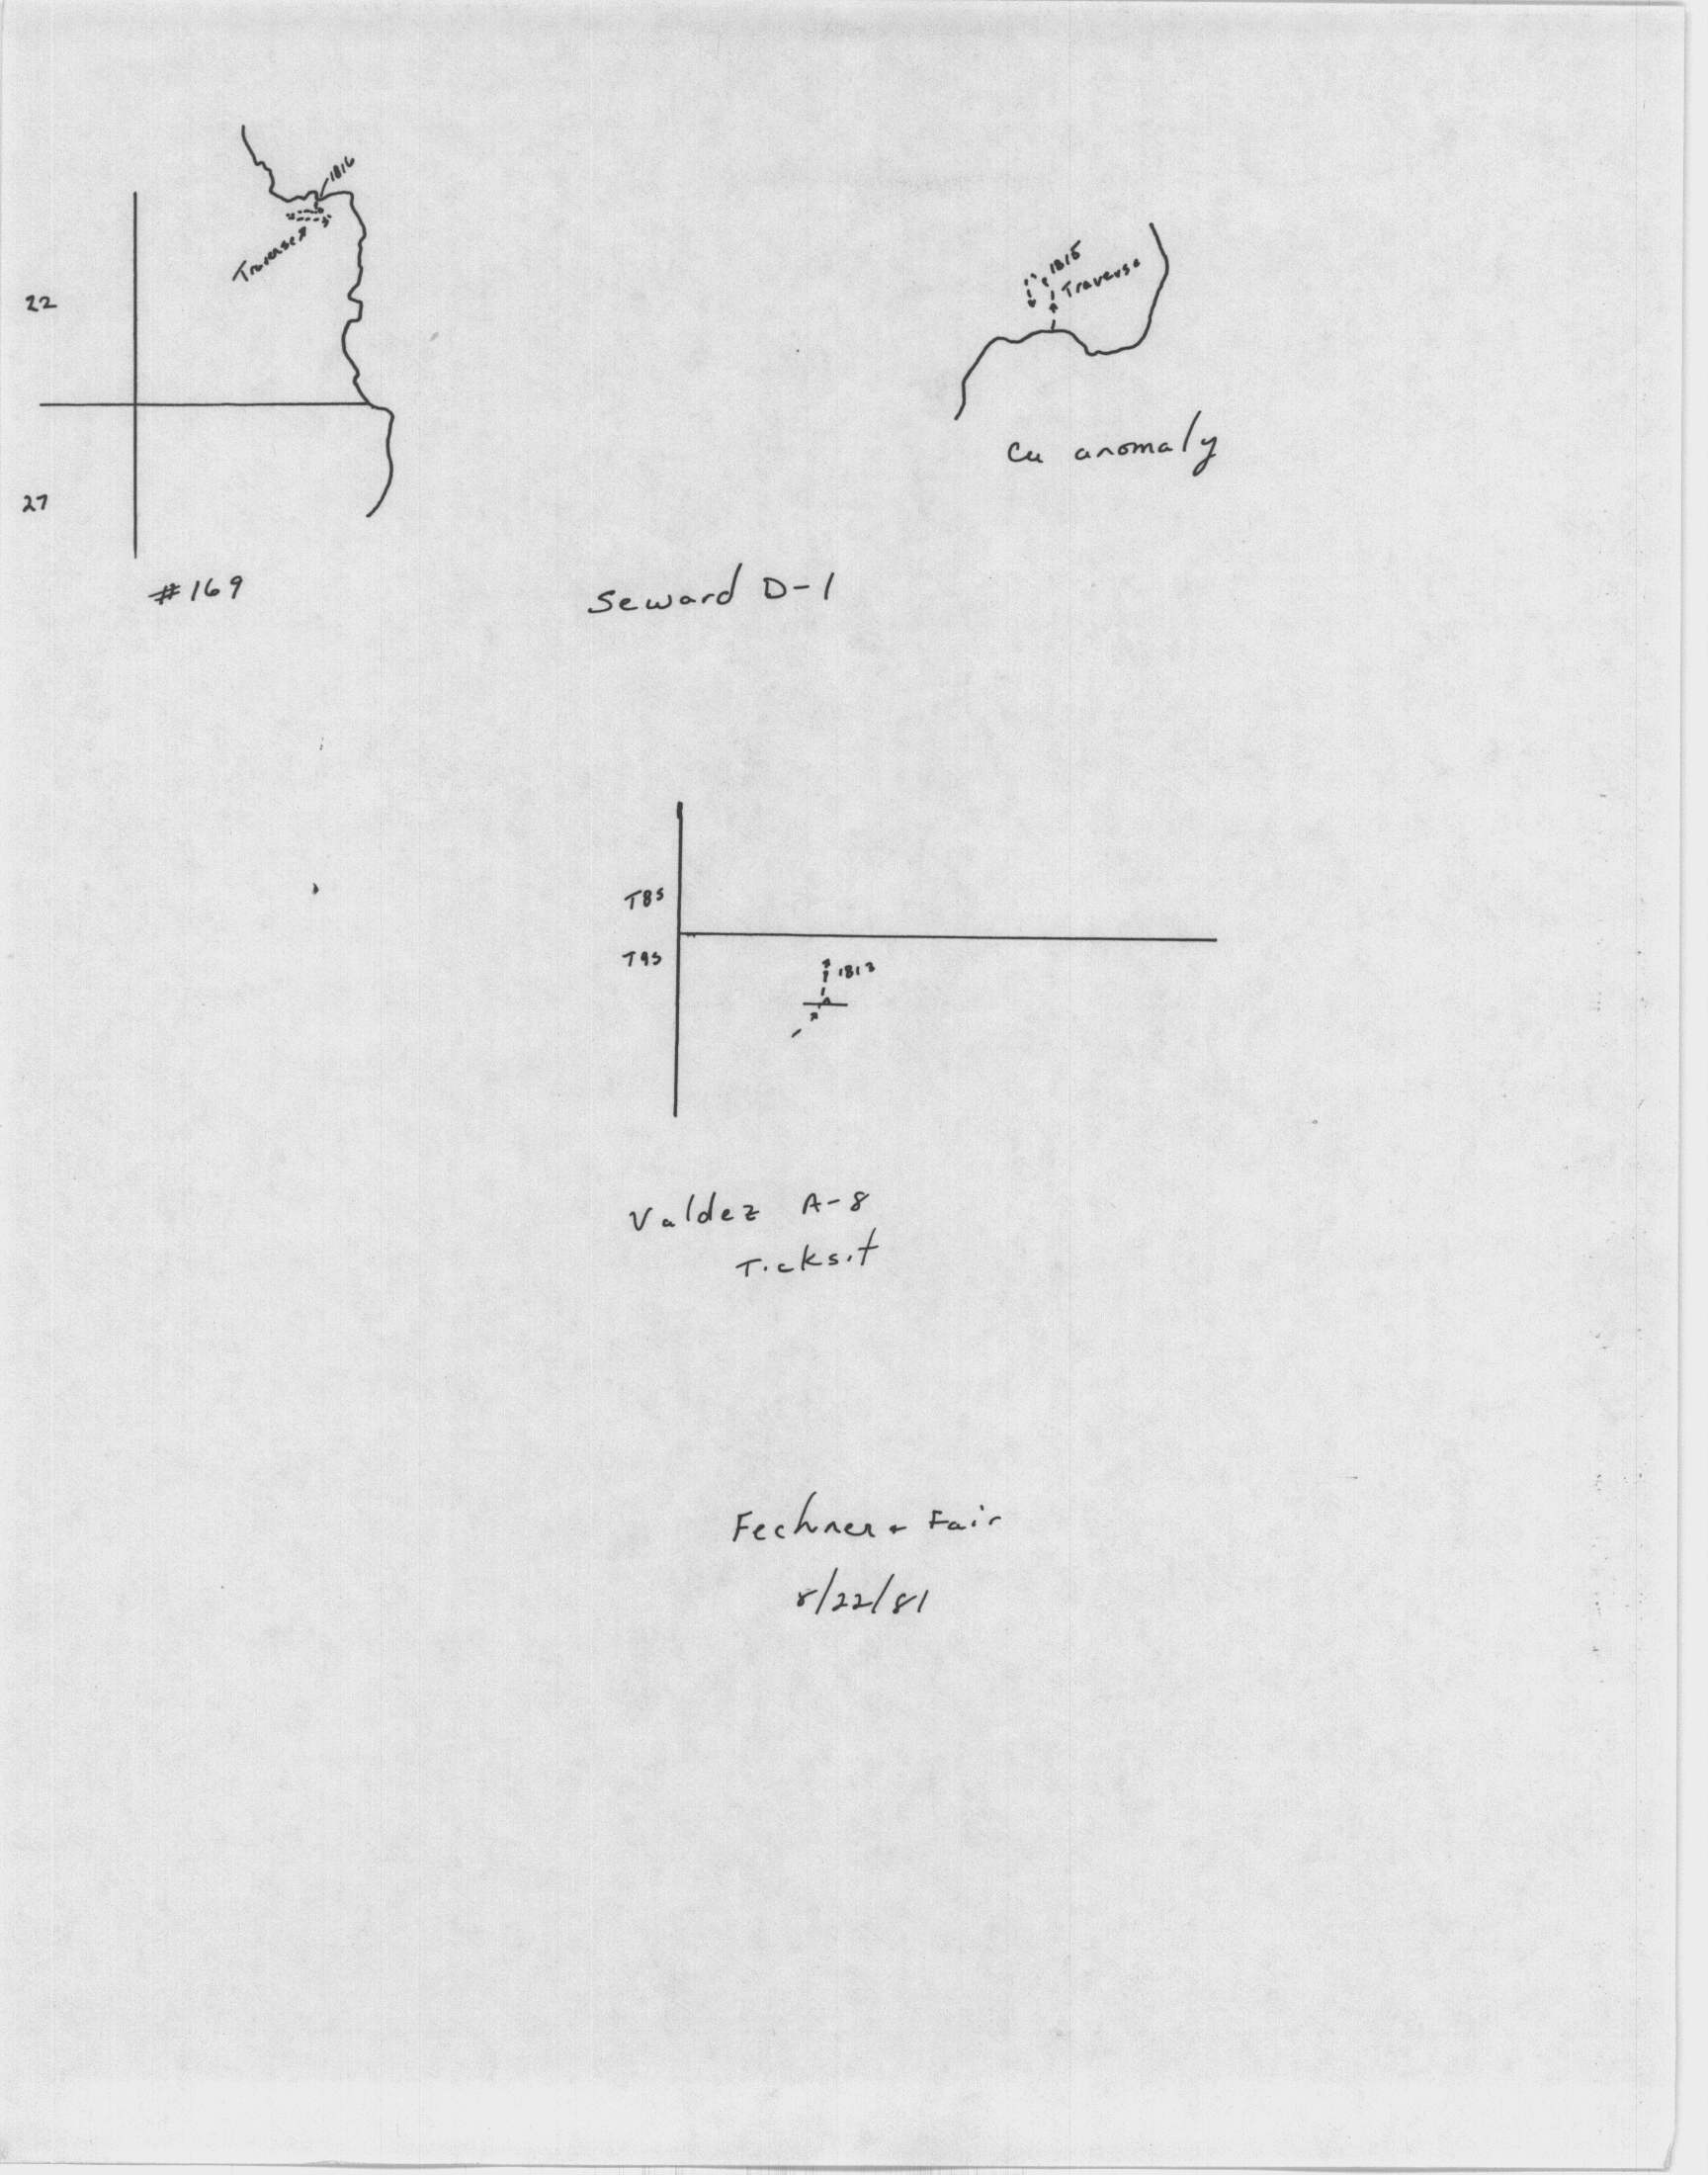 1816
Traverse
22
27
#169
1815
Traverse
Cu anomaly
Seward D-1
T8S
T9S
1813
Valdez A-8
Ticksit
Fechner + Fair
8/22/81